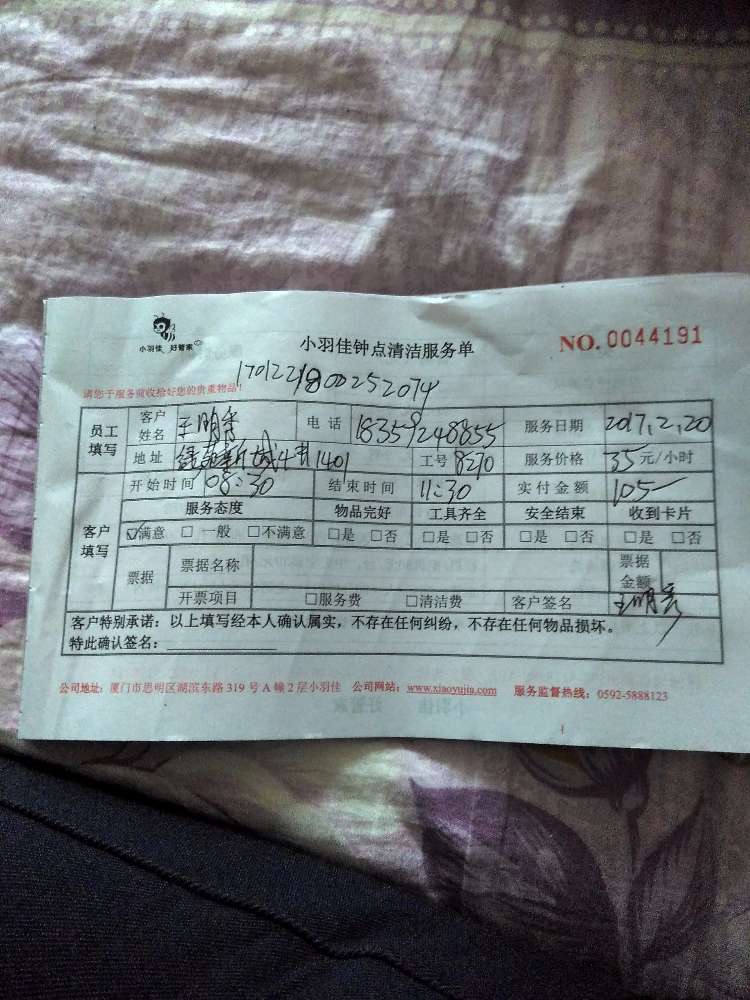 小羽佳 好管家
小羽佳钟点清洁服务单
NO. 0044191
请您于服务前收捡好您的贵重物品！
1701221800252074
员工填写 客户姓名 王明 电话 18359248855 服务日期 2017,2,20
地址 新城 1401 工号 8270 服务价格 35元/小时
客户填写 开始时间 08:30 结束时间 11:30 实付金额 105
服务态度 物品完好 工具齐全 安全结束 收到卡片
☑满意 □ 一般 □不满意 □是 □否 □是 □否 □是 □否 □是 □否
票据 票据名称 票据金额
开票项目 □服务费 □清洁费 客户签名 王明
客户特别承诺：以上填写经本人确认属实，不存在任何纠纷，不存在任何物品损坏。
特此确认签名：
公司地址：厦门市思明区湖滨东路 319 号 A 幢 2 层小羽佳 公司网站：www.xiaoyujia.com 服务监督热线：0592-5888123